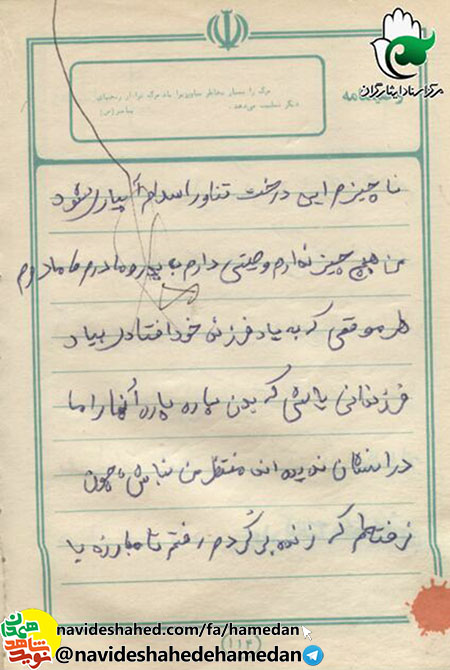 مرکز اسناد ایثارگران
وصیتنامه
مرگ را بسیار بخاطر بیاورید یاد مرگ شما را از رنجهای
دیگر تسلیت می‌دهد. پیامبر (ص)
ناچیزم این درخت تناور اسلام آبیاری شود
من هیچ چیز ندارم وصیتی دارم به پدر و مادرم مادرم
هر موقعی که به یاد فرزند خود افتادی بیاد
فرزندانی باشی که بدن پاره پاره آنها را ما
در ندیده اند منتظر من نباش چون
نرفته‌ام که زنده برگردم رفتم تا مبارزه با
(۱۱۳)
navideshahed.com/fa/hamedan
@navideshahedehamedan
نوید شاهد همدان